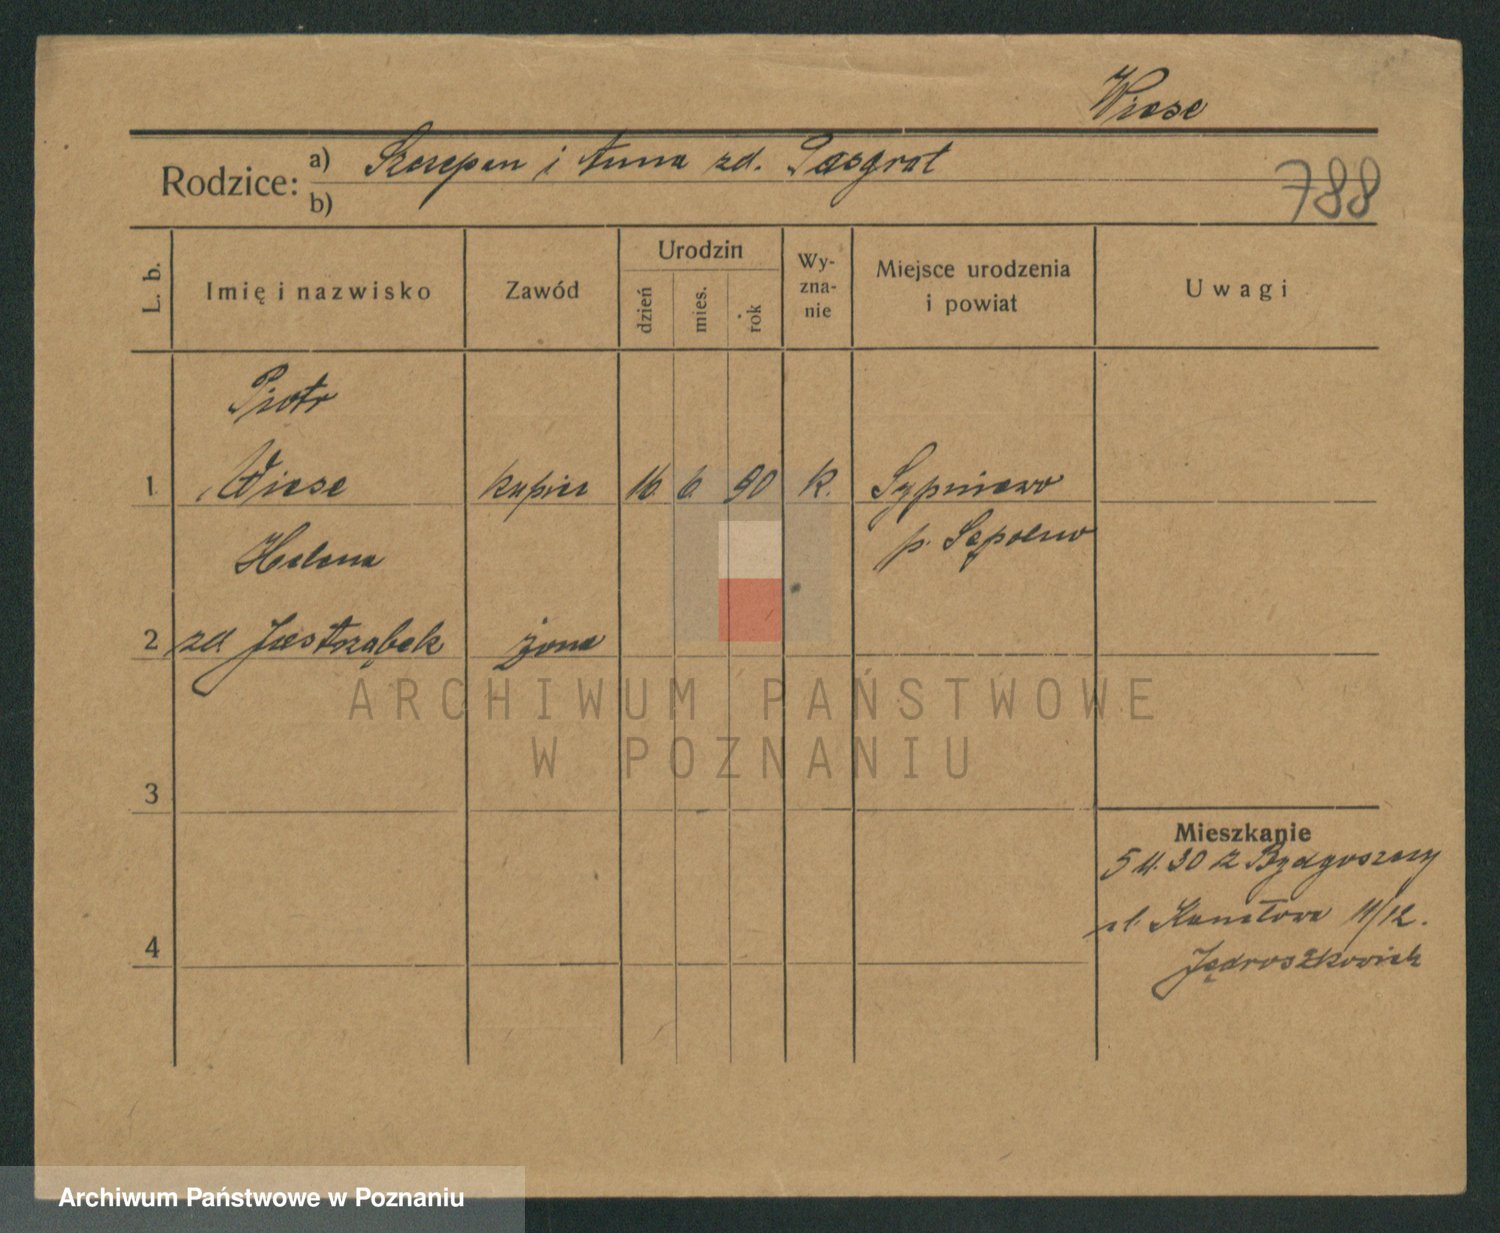 Wiese
Rodzice:
a) Szczepan i Anna zd. Pasgrat
b)
788
L. b.
Imię i nazwisko
Zawód
Urodzin
dzień
mies.
rok
Wy-
zna-
nie
Miejsce urodzenia
i powiat
Uwagi
Piotr
1 Wiese kupiec 16 6 90 k. Sypniewo
p. Sępolno
Helena
2 zd Jastrząbek żona
ARCHIWUM PAŃSTWOWE
W POZNANIU
3
Mieszkanie
5 11.30 z Bydgoszczy
ul. Kanałowa 11/12.
4
Jędroszkowiak
Archiwum Państwowe w Poznaniu